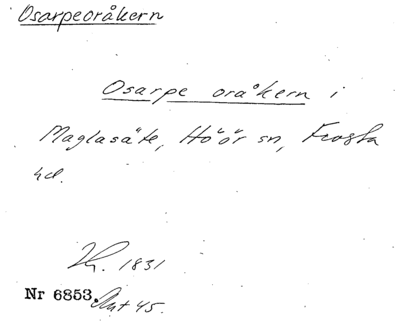 Osarpeoråkern
Osarpe oråkern i
Maglasäte, Höör sn, Frosta
hd.
1831
Nr 6853. Akt 45.